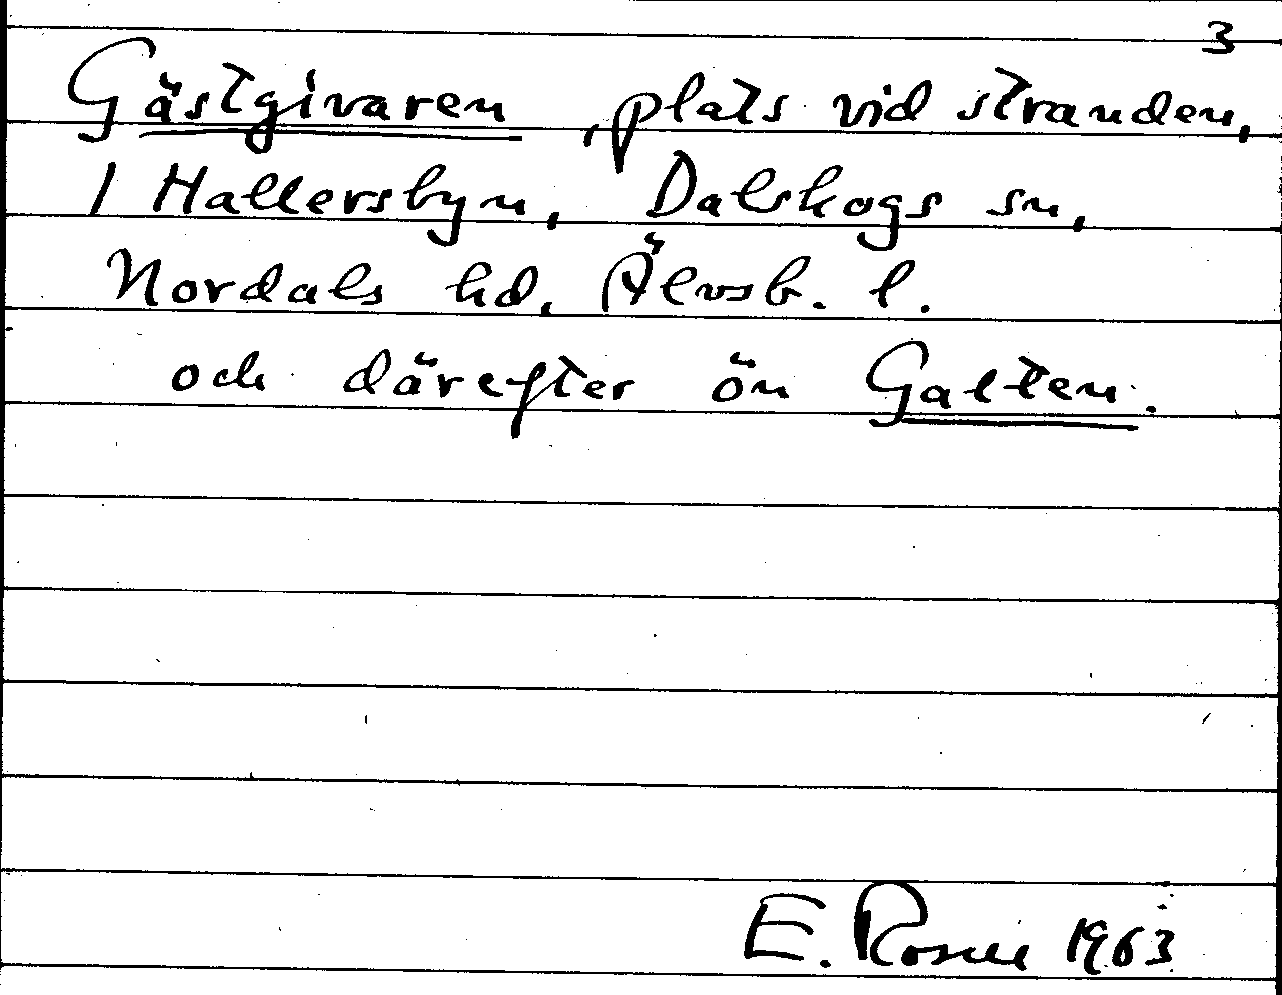 3
Gästgivaren, plats vid stranden,
I Hallersbyn, Dalskogs sn,
Nordals hd, Älvsb. l.
och därefter ön Galten.
E. Rosell 1963